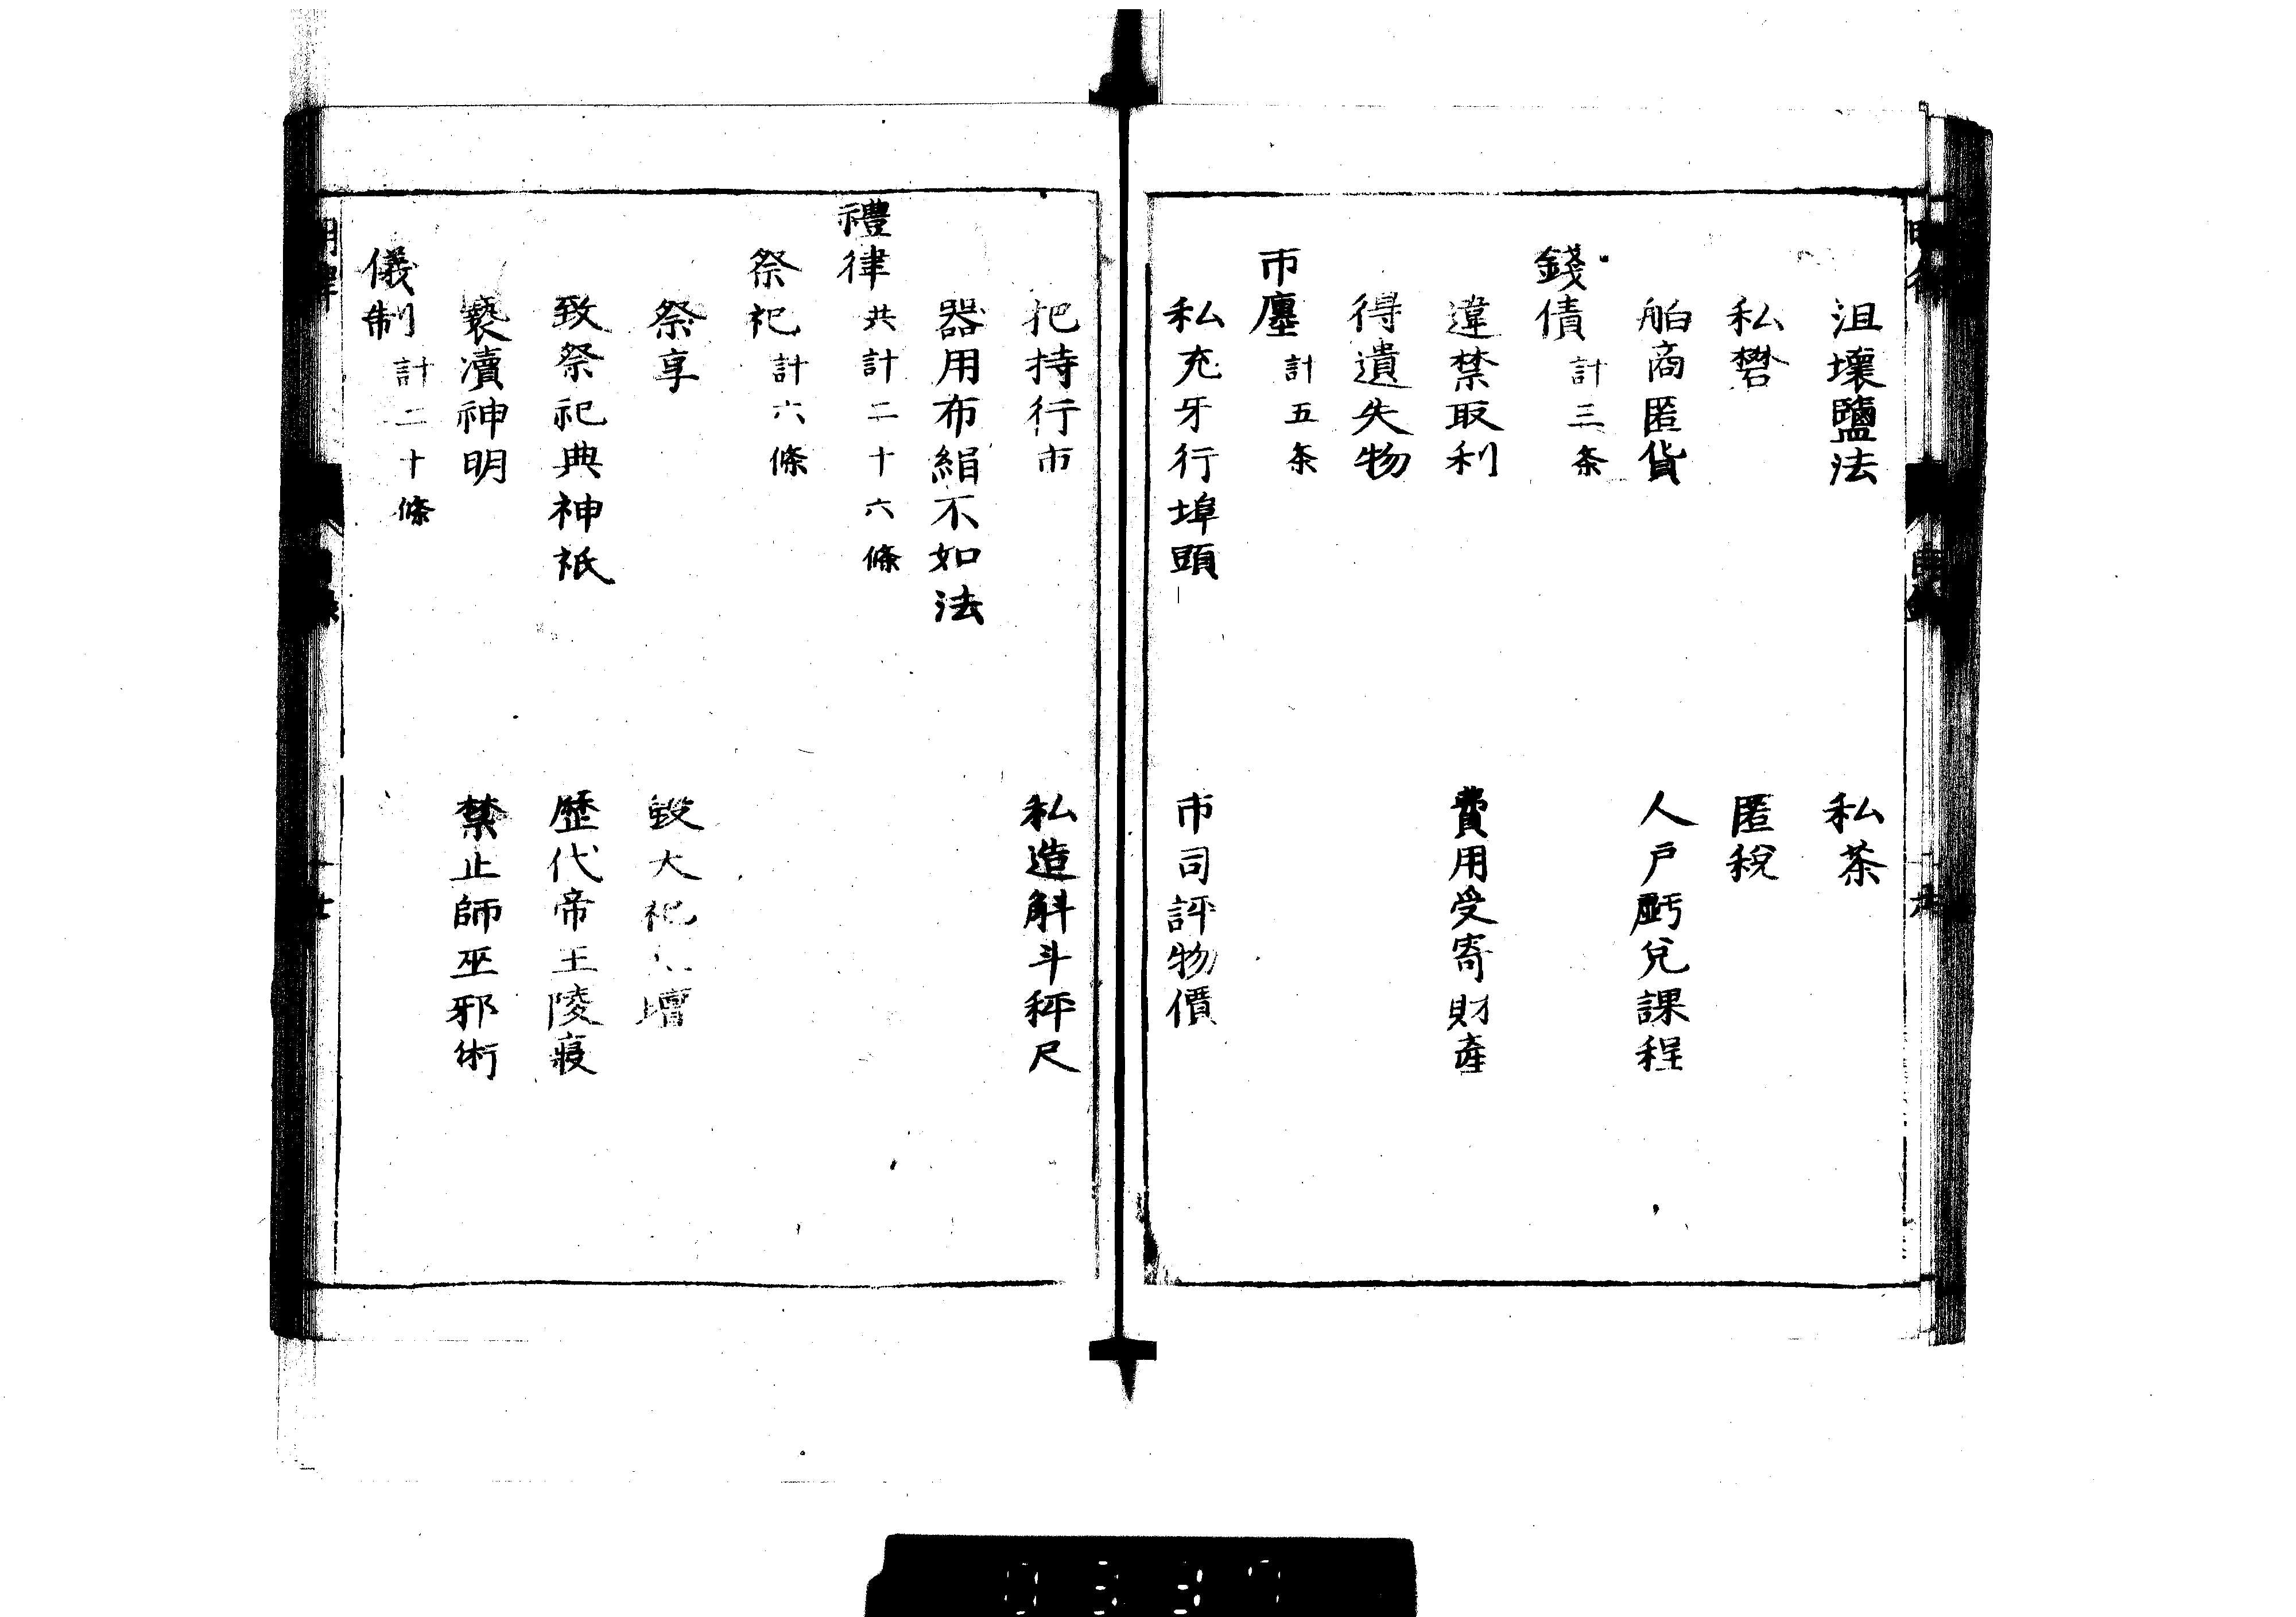 沮壞鹽法　私茶
私礬　匿稅
舶商匿貨　人戶虧兌課程
錢債 計三条
違禁取利　費用受寄財產
得遺失物
市廛 計五条
私充牙行埠頭　市司評物價
把持行市　私造斛斗秤尺
器用布絹不如法
禮律 共計二十六條
祭祀 計六條
祭享　毀大祀 壇
致祭祀典神祇　歷代帝王陵寢
褻瀆神明　禁止師巫邪術
儀制 計二十條